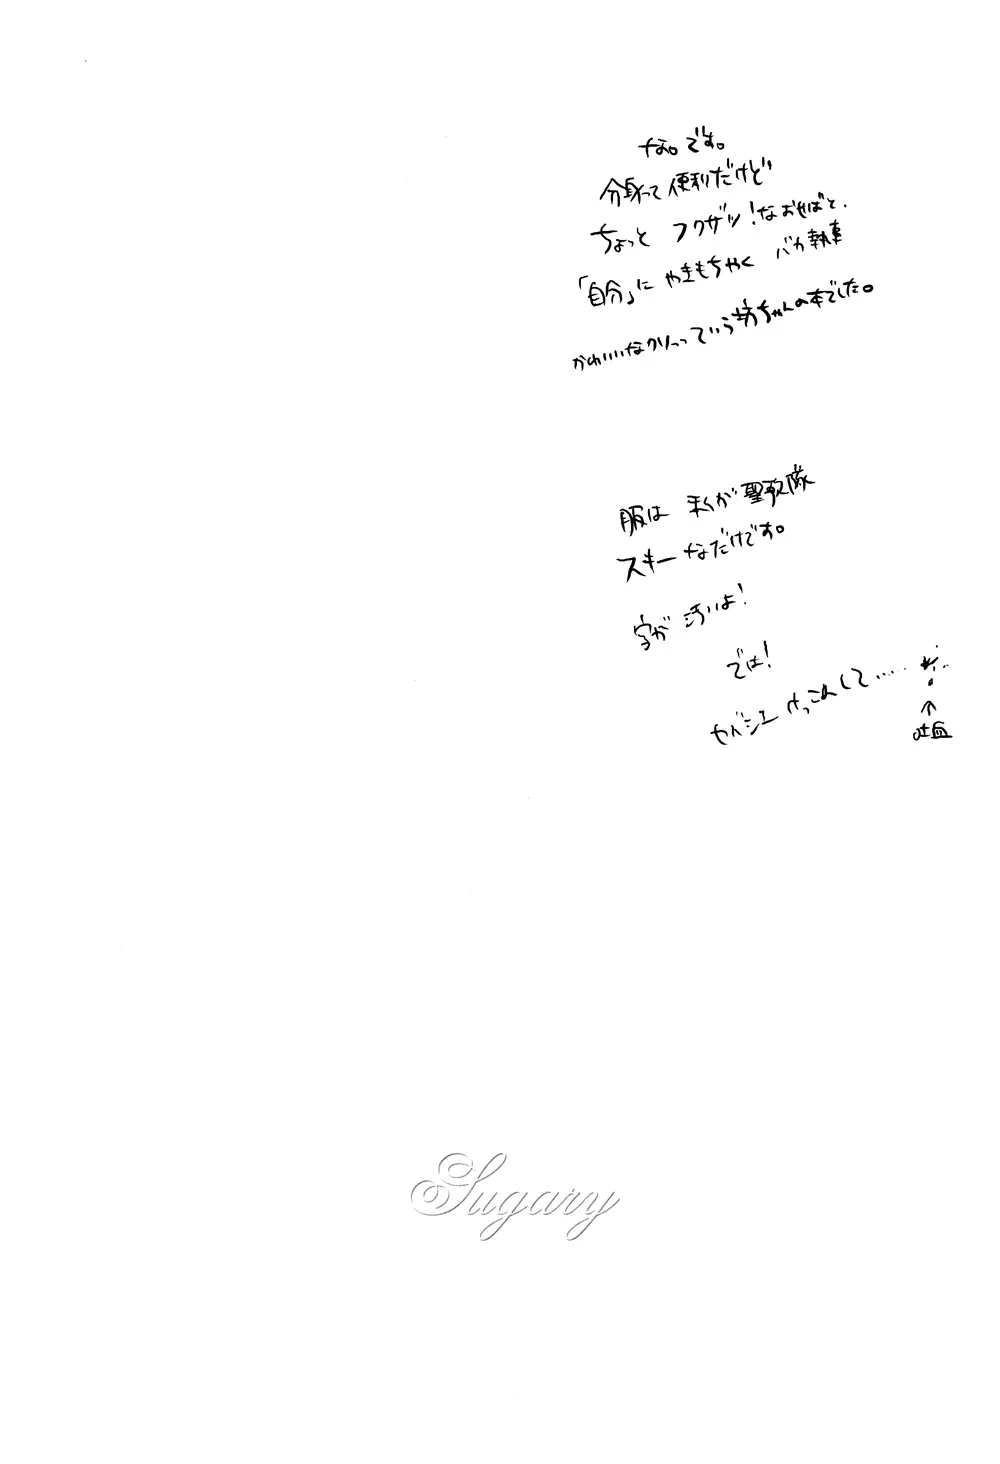 な。です。
分身って便利だけど
ちょっと フクザツ!なおせばと、
「自分」に やきもちやく バカ執事
かわいいなクソっっていう坊ちゃんの本でした。
服は 未くが聖歌隊
スキーなだけです。
字が 汚いよ!
では!
セバシエ けっこんして……
↑
吐血
Sugary